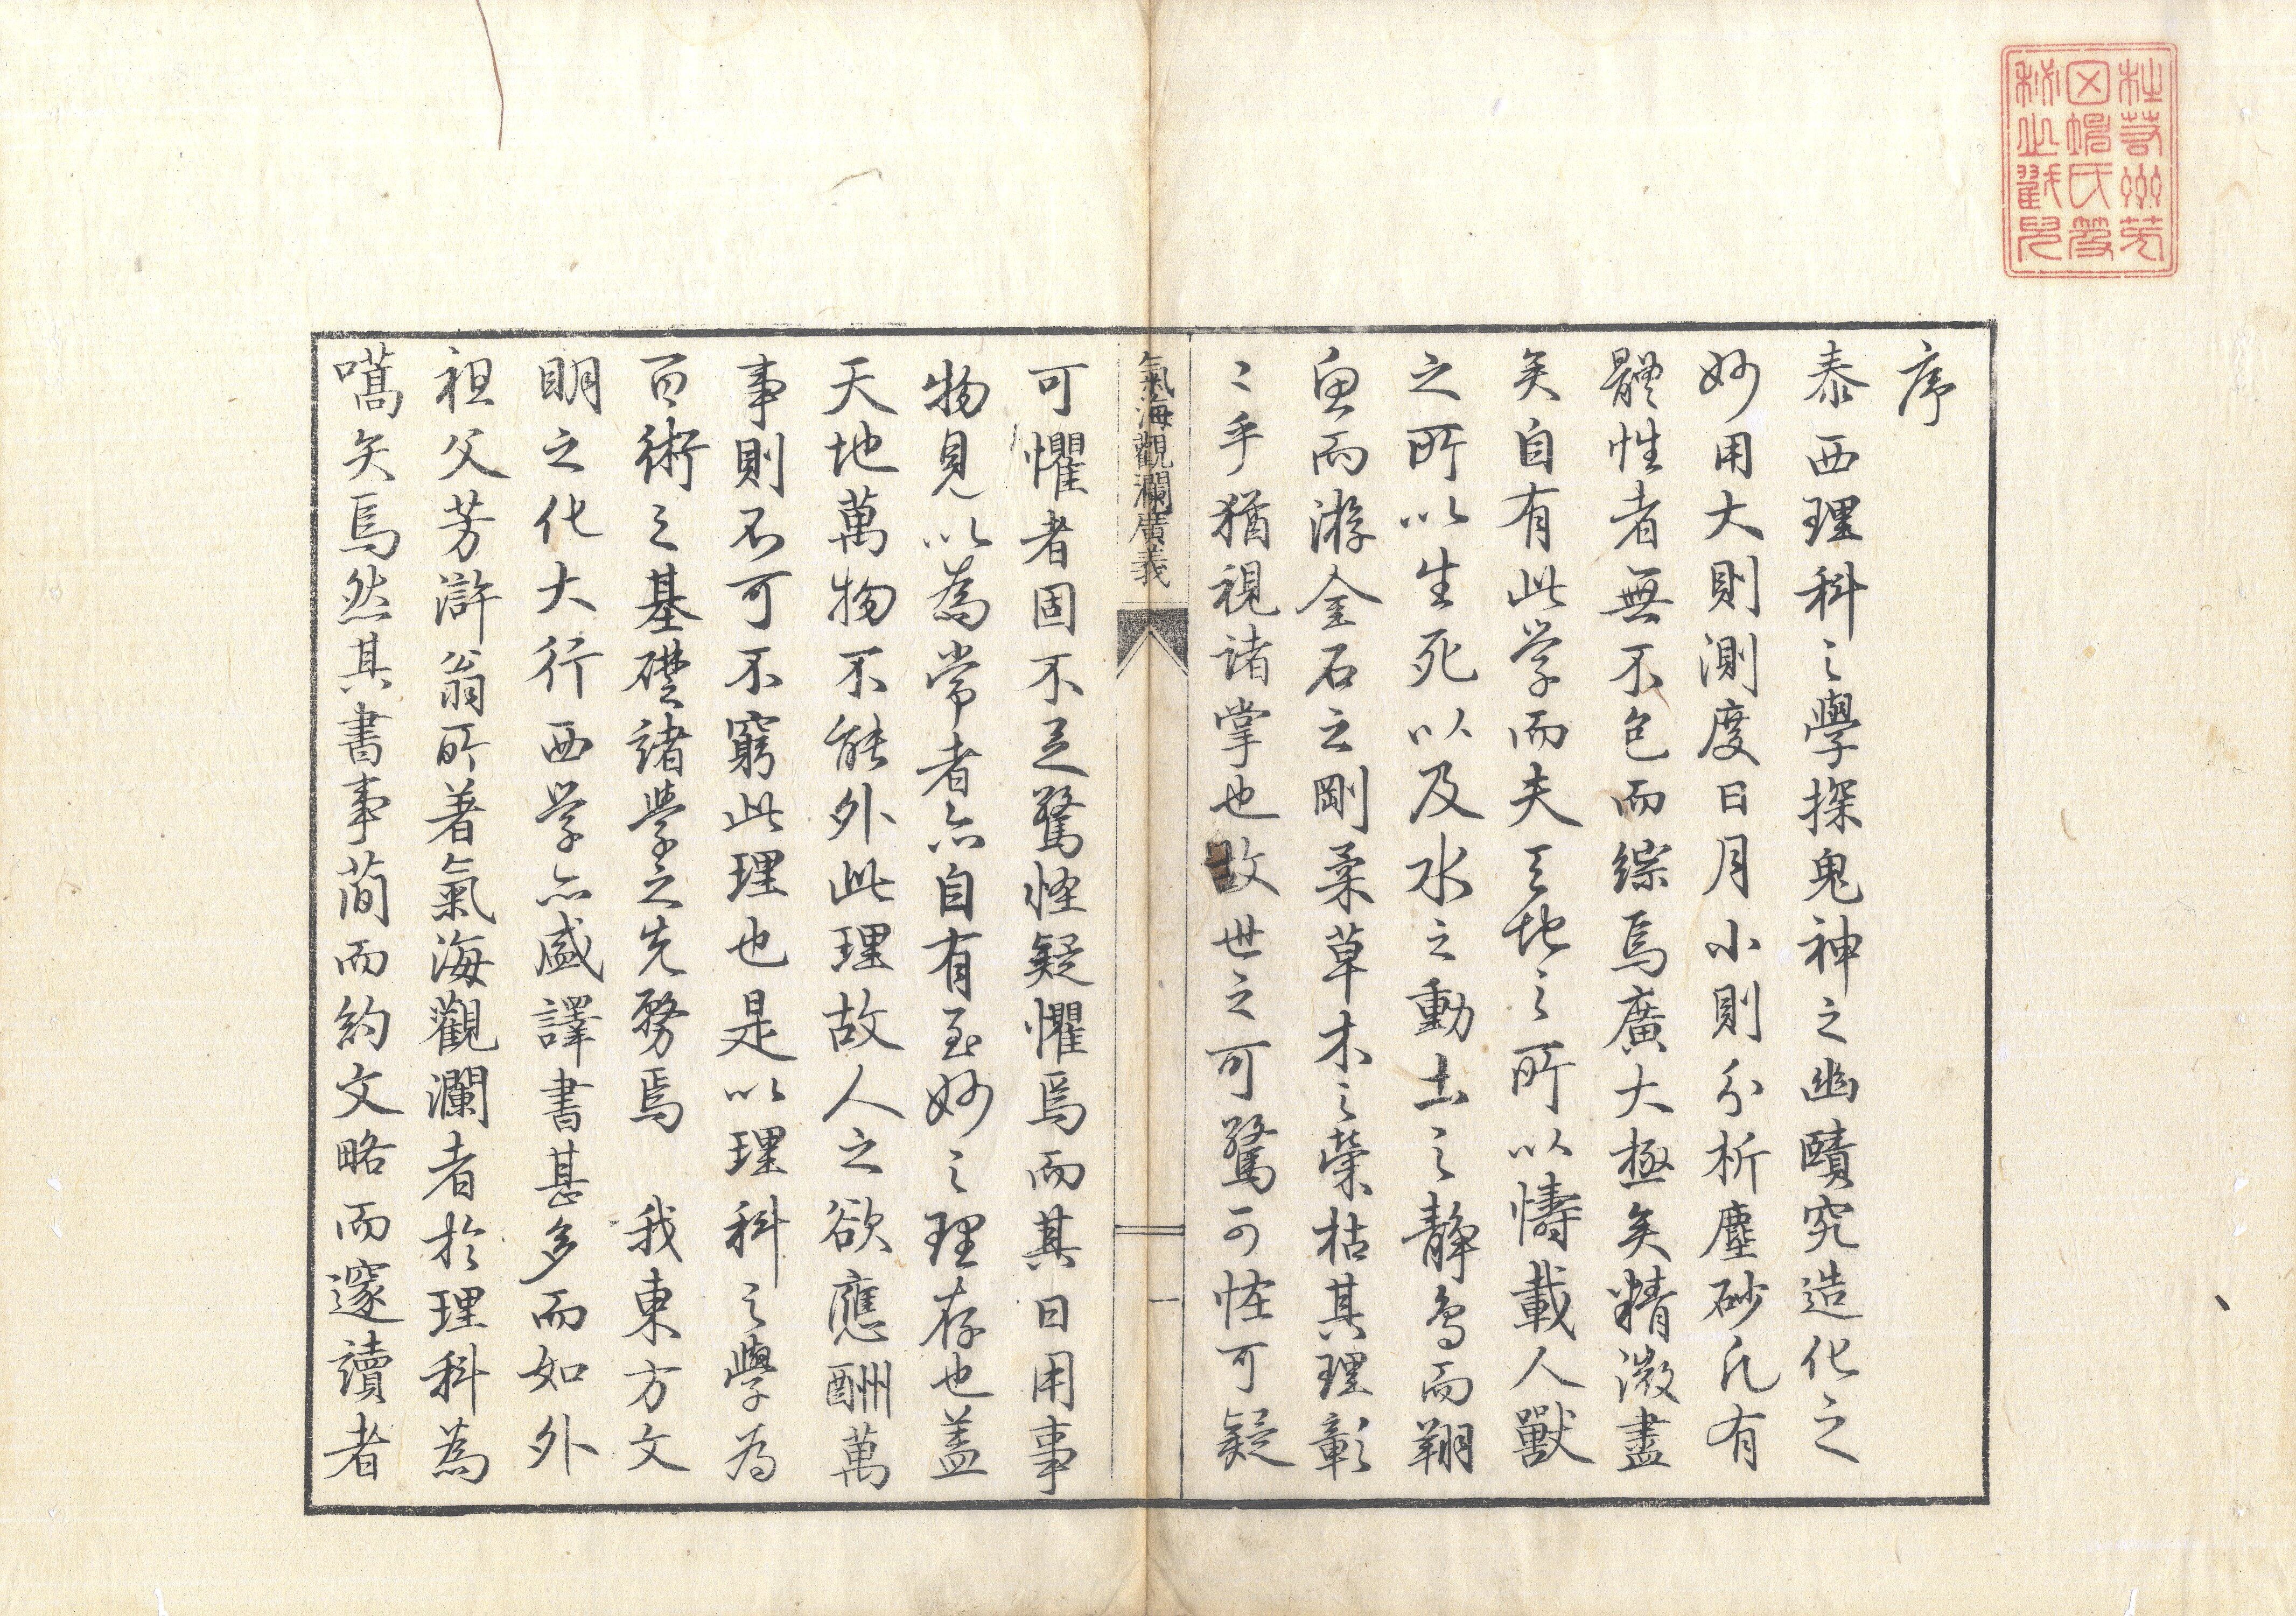 序
泰西理科之學探鬼神之幽賾究造化之
妙用大則測度日月小則分析塵砂凡有
體性者無不包而綜焉廣大極矣精微盡
矣自有此学而夫天地之所以幬載人獸
之所以生死以及水之動土之靜鳥而翔
魚而游金石之剛柔草木之榮枯其理彰
〻乎猶視諸掌也故世之可驚可怪可疑
氣海觀瀾廣義
一
可懼者固不足驚怪疑懼焉而其日用事
物見以為常者亦自有至妙之理存也蓋
天地萬物不能外此理故人之欲應酬萬
事則不可不窮此理也是以理科之學為
百術之基礎諸學之先務焉　我東方文
明之化大行西学亦盛譯書甚多而如外
祖父芳滸翁所著氣海觀瀾者於理科為
嚆矢焉然其書事簡而約文略而邃讀者